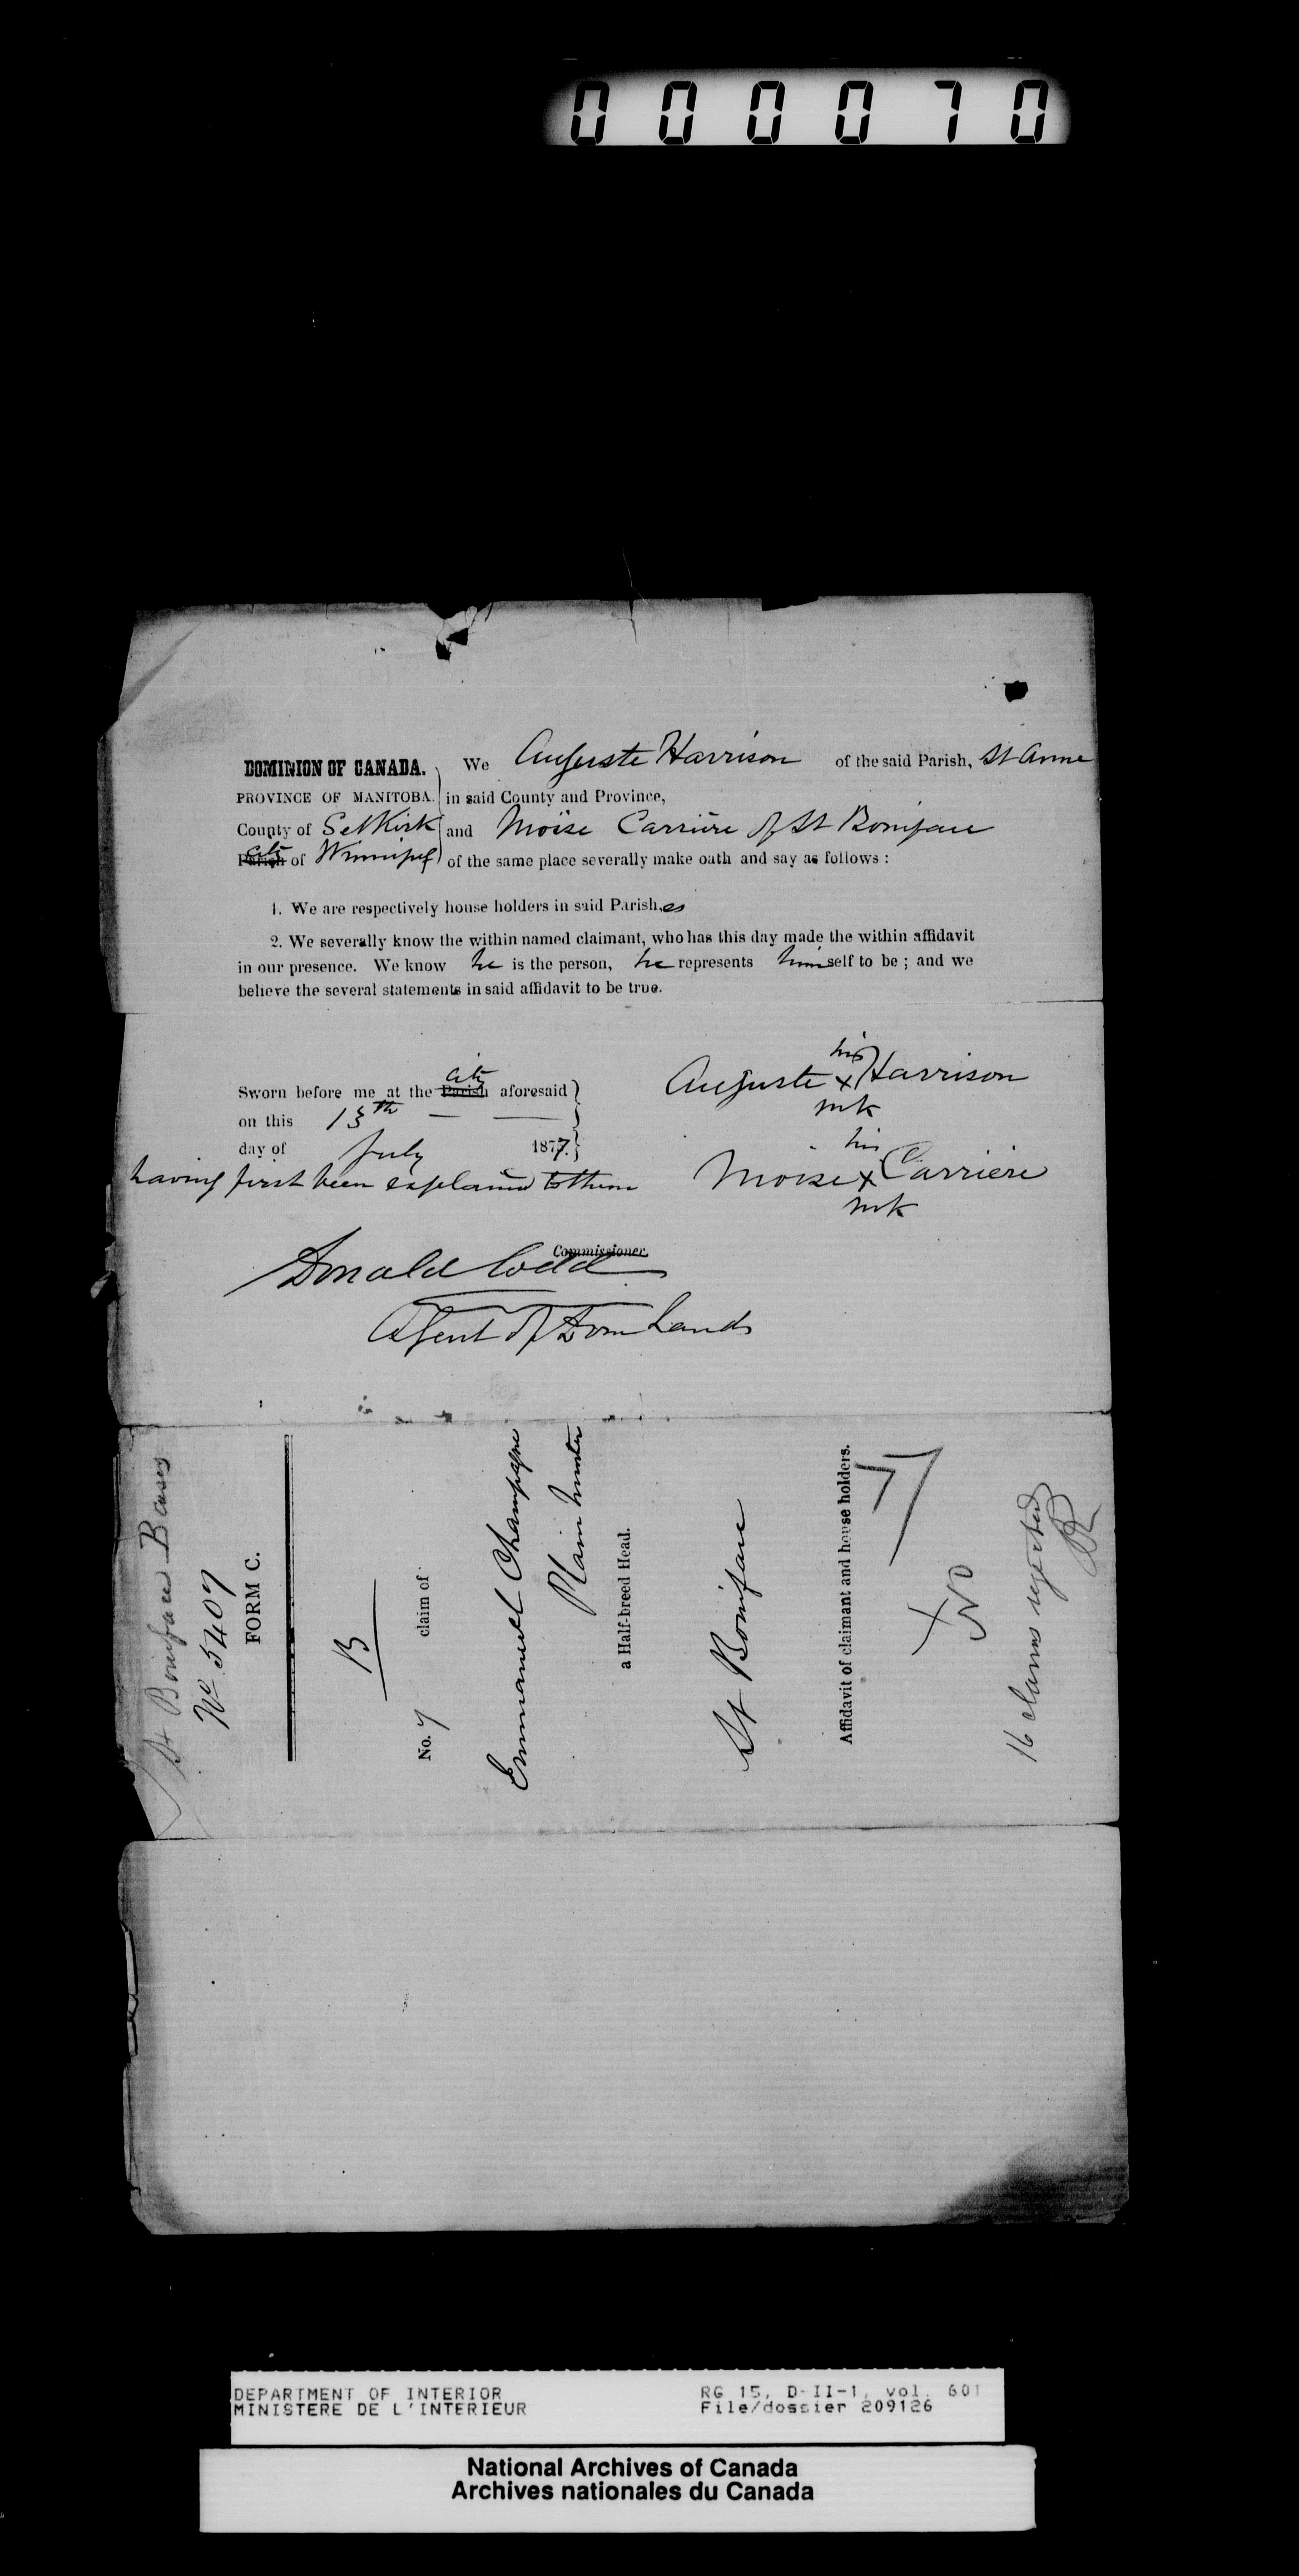 000070
DOMINION OF CANADA. We Auguste Harrison of the said Parish, St Anne
PROVINCE OF MANITOBA. in said County and Province,
County of Selkirk and Moïse Carrière of St Boniface
Parish City of Winnipeg of the same place severally make oath and say as follows :
1. We are respectively house holders in said Parish.es
2. We severally know the within named claimant, who has this day made the within affidavit
in our presence. We know he is the person, he represents himself to be ; and we
believe the several statements in said affidavit to be true.
Sworn before me at the Parish City aforesaid
on this 13th
day of July 1877.
having first been explained to them
his
Auguste x Harrison
mk
his
Moise x Carriere
mk
Commissioner.
Donald Codd
Agent of Dom Lands
St Boniface B cases
No 5407
FORM C.
B
No. 7 claim of
Emmanuel Champagne
Plain hunter
a Half-breed Head.
St Boniface
Affidavit of claimant and house holders.
X
16 claims rejected
DEPARTMENT OF INTERIOR
MINISTERE DE L'INTERIEUR
RG 15, D-II-1, vol. 601
File/dossier 209126
National Archives of Canada
Archives nationales du Canada